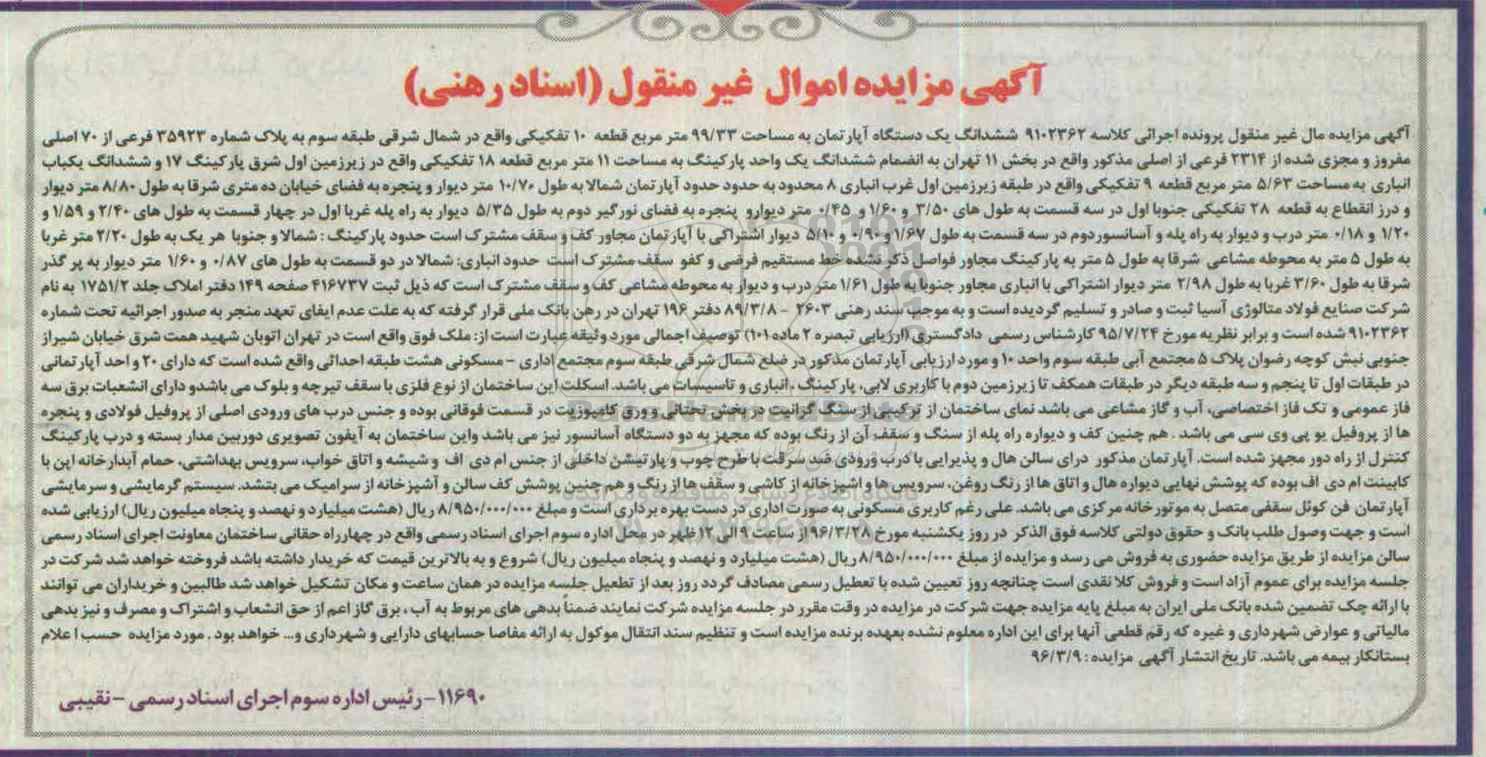 آگهی مزایده اموال غیر منقول (اسناد رهنی)
آگهی مزایده مال غیر منقول پرونده اجرائی کلاسه ۹۱۰۲۳۶۲ ششدانگ یک دستگاه آپارتمان به مساحت ۹۹/۳۳ متر مربع قطعه ۱۰ تفکیکی واقع در شمال شرقی طبقه سوم به پلاک شماره ۳۵۹۲۳ فرعی از ۷۰ اصلی
مفروز و مجزی شده از ۲۳۱۴ فرعی از اصلی مذکور واقع در بخش ۱۱ تهران به انضمام ششدانگ یک واحد پارکینگ به مساحت ۱۱ متر مربع قطعه ۱۸ تفکیکی واقع در زیرزمین اول شرق پارکینگ ۱۷ و ششدانگ یکباب
انباری به مساحت ۵/۶۳ متر مربع قطعه ۹ تفکیکی واقع در طبقه زیرزمین اول غرب انباری ۸ محدود به حدود حدود آپارتمان شمالا به طول ۱۰/۷۰ متر دیوار و پنجره به فضای خیابان ده متری شرقا به طول ۸/۸۰ متر دیوار
و درز انقطاع به قطعه ۲۸ تفکیکی جنوبا اول در سه قسمت به طول های ۳/۵۰ و ۱/۶۰ و ۰/۴۵ متر دیوارو پنجره به فضای نورگیر دوم به طول ۵/۳۵ دیوار به راه پله غربا اول در چهار قسمت به طول های ۲/۴۰ و ۱/۵۹ و
۱/۲۰ و ۰/۱۸ متر درب و دیوار به راه پله و آسانسور دوم در سه قسمت به طول ۱/۶۷ و ۰/۹۰ و ۵/۱۰ دیوار اشتراکی با آپارتمان مجاور کف و سقف مشترک است حدود پارکینگ : شمالا و جنوبا هر یک به طول ۲/۲۰ متر غربا
به طول ۵ متر به محوطه مشاعی شرقا به طول ۵ متر به پارکینگ مجاور فواصل ذکر نشده خط مستقیم فرضی و کفو سقف مشترک است حدود انباری: شمالا در دو قسمت به طول های ۰/۸۷ و ۱/۶۰ متر دیوار به پر گذر
شرقا به طول ۳/۶۰ غربا به طول ۲/۹۸ متر دیوار اشتراکی با انباری مجاور جنوبا به طول ۱/۶۱ متر درب و دیوار به محوطه مشاعی کف و سقف مشترک است که ذیل ثبت ۴۱۶۷۳۷ صفحه ۱۴۹ دفتر املاک جلد ۱۷۵۱/۲ به نام
شرکت صنایع فولاد متالوژی آسیا ثبت و صادر و تسلیم گردیده است و به موجب سند رهنی ۲۶۰۳ - ۸۹/۳/۸ دفتر ۱۹۶ تهران در رهن بانک ملی قرار گرفته که به علت عدم ایفای تعهد منجر به صدور اجرائیه تحت شماره
۹۱۰۲۳۶۲ شده است و برابر نظریه مورخ ۹۵/۷/۲۴ کارشناس رسمی دادگستری (ارزیابی تبصره ۲ ماده ۱۰۱) توصیف اجمالی مورد وثیقه عبارت است از: ملک فوق واقع است در تهران اتوبان شهید همت شرق خیابان شیراز
جنوبی نبش کوچه رضوان پلاک ۵ مجتمع آبی طبقه سوم واحد ۱۰ و مورد ارزیابی آپارتمان مذکور در ضلع شمال شرقی طبقه سوم مجتمع اداری – مسکونی هشت طبقه احداثی واقع شده است که دارای ۲۰ و احد آپارتمانی
در طبقات اول تا پنجم و سه طبقه دیگر در طبقات همکف تا زیرزمین دوم با کاربری لابی، پارکینگ ، انباری و تاسیسات می باشد. اسکلت این ساختمان از نوع فلزی با سقف تیرچه و بلوک می باشدو دارای انشعبات برق سه
فاز عمومی و تک فاز اختصاصی، آب و گاز مشاعی می باشد نمای ساختمان از ترکیبی از سنگ گرانیت در بخش تحتانی و ورق کامپوزیت در قسمت فوقانی بوده و جنس درب های ورودی اصلی از پروفیل فولادی و پنجره
ها از پروفیل یو پی وی سی می باشد . هم چنین کف و دیواره راه پله از سنگ و سقف آن از رنگ بوده که مجهز به دو دستگاه آسانسور نیز می باشد واین ساختمان به آیفون تصویری دوربین مدار بسته و درب پارکینگ
کنترل از راه دور مجهز شده است. آپارتمان مذکور درای سالن هال و پذیرایی با درب ورودی ضد سرقت با طرح چوب و پارتیشن داخلی از جنس ام دی اف و شیشه و اتاق خواب، سرویس بهداشتی، حمام آبدارخانه اپن با
کابینت ام دی اف بوده که پوشش نهایی دیواره هال و اتاق ها از رنگ روغن، سرویس ها و اشپزخانه از کاشی و سقف ها از رنگ و هم چنین پوشش کف سالن و آشپزخانه از سرامیک می بتشد. سیستم گرمایشی و سرمایشی
آپارتمان فن کوئل سقفی متصل به موتورخانه مرکزی می باشد. علی رغم کاربری مسکونی به صورت اداری در دست بهره برداری است و مبلغ ۸/۹۵۰/۰۰۰/۰۰۰ ریال (هشت میلیارد و نهصد و پنجاه میلیون ریال) ارزیابی شده
است و جهت وصول طلب بانک و حقوق دولتی کلاسه فوق الذکر در روز یکشنبه مورخ ۹۶/۳/۲۸ از ساعت ۹ الی ۱۲ ظهر در محل اداره سوم اجرای اسناد رسمی واقع در چهارراه حقانی ساختمان معاونت اجرای اسناد رسمی
سالن مزایده از طریق مزایده حضوری به فروش می رسد و مزایده از مبلغ ۸/۹۵۰/۰۰۰/۰۰۰ ریال (هشت میلیارد و نهصد و پنجاه میلیون ریال) شروع و به بالاترین قیمت که خریدار داشته باشد فروخته خواهد شد شرکت در
جلسه مزایده برای عموم آزاد است و فروش کلا نقدی است چنانچه روز تعیین شده با تعطیل رسمی مصادف گردد روز بعد از تطعیل جلسه مزایده در همان ساعت و مکان تشکیل خواهد شد طالبین و خریداران می توانند
با ارائه چک تضمین شده بانک ملی ایران به مبلغ پایه مزایده جهت شرکت در مزایده در وقت مقرر در جلسه مزایده شرکت نمایند ضمناً بدهی های مربوط به آب ، برق گاز اعم از حق انشعاب و اشتراک و مصرف و نیز بدهی
مالیاتی و عوارض شهرداری و غیره که رقم قطعی آنها برای این اداره معلوم نشده بعهده برنده مزایده است و تنظیم سند انتقال موکول به ارائه مفاصا حسابهای دارایی و شهرداری و... خواهد بود . مورد مزایده حسب اعلام
بستانکار بیمه می باشد. تاریخ انتشار آگهی مزایده : ۹۶/۳/۹
۱۱۶۹۰- رئیس اداره سوم اجرای اسناد رسمی – نقیبی